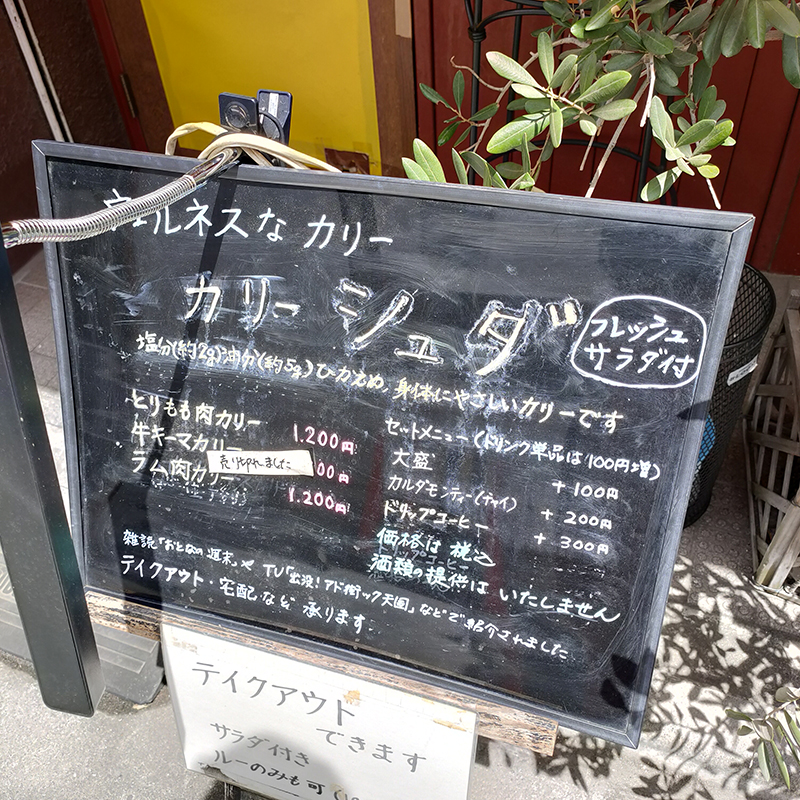 ウェルネスな カリー
カリー シュダ
フレッシュ
サラダ付
塩分(約2g)油分(約5g)ひかえめ 身体にやさしいカリーです
とりもも肉カリー 1.200円
牛キーマカリー 00円
売り切れました
ラム肉カリー 1.200円
セットメニュー(ドリンク単品は100円増)
大盛 +100円
カルダモンティー(チャイ) +200円
ドリップコーヒー +300円
価格は税込
酒類の提供はいたしません
雑誌「おとなの週末」や TV「出没!アド街ック天国」などで紹介されました
テイクアウト・宅配なども承ります
テイクアウト
できます
サラダ付き
ルーのみも可